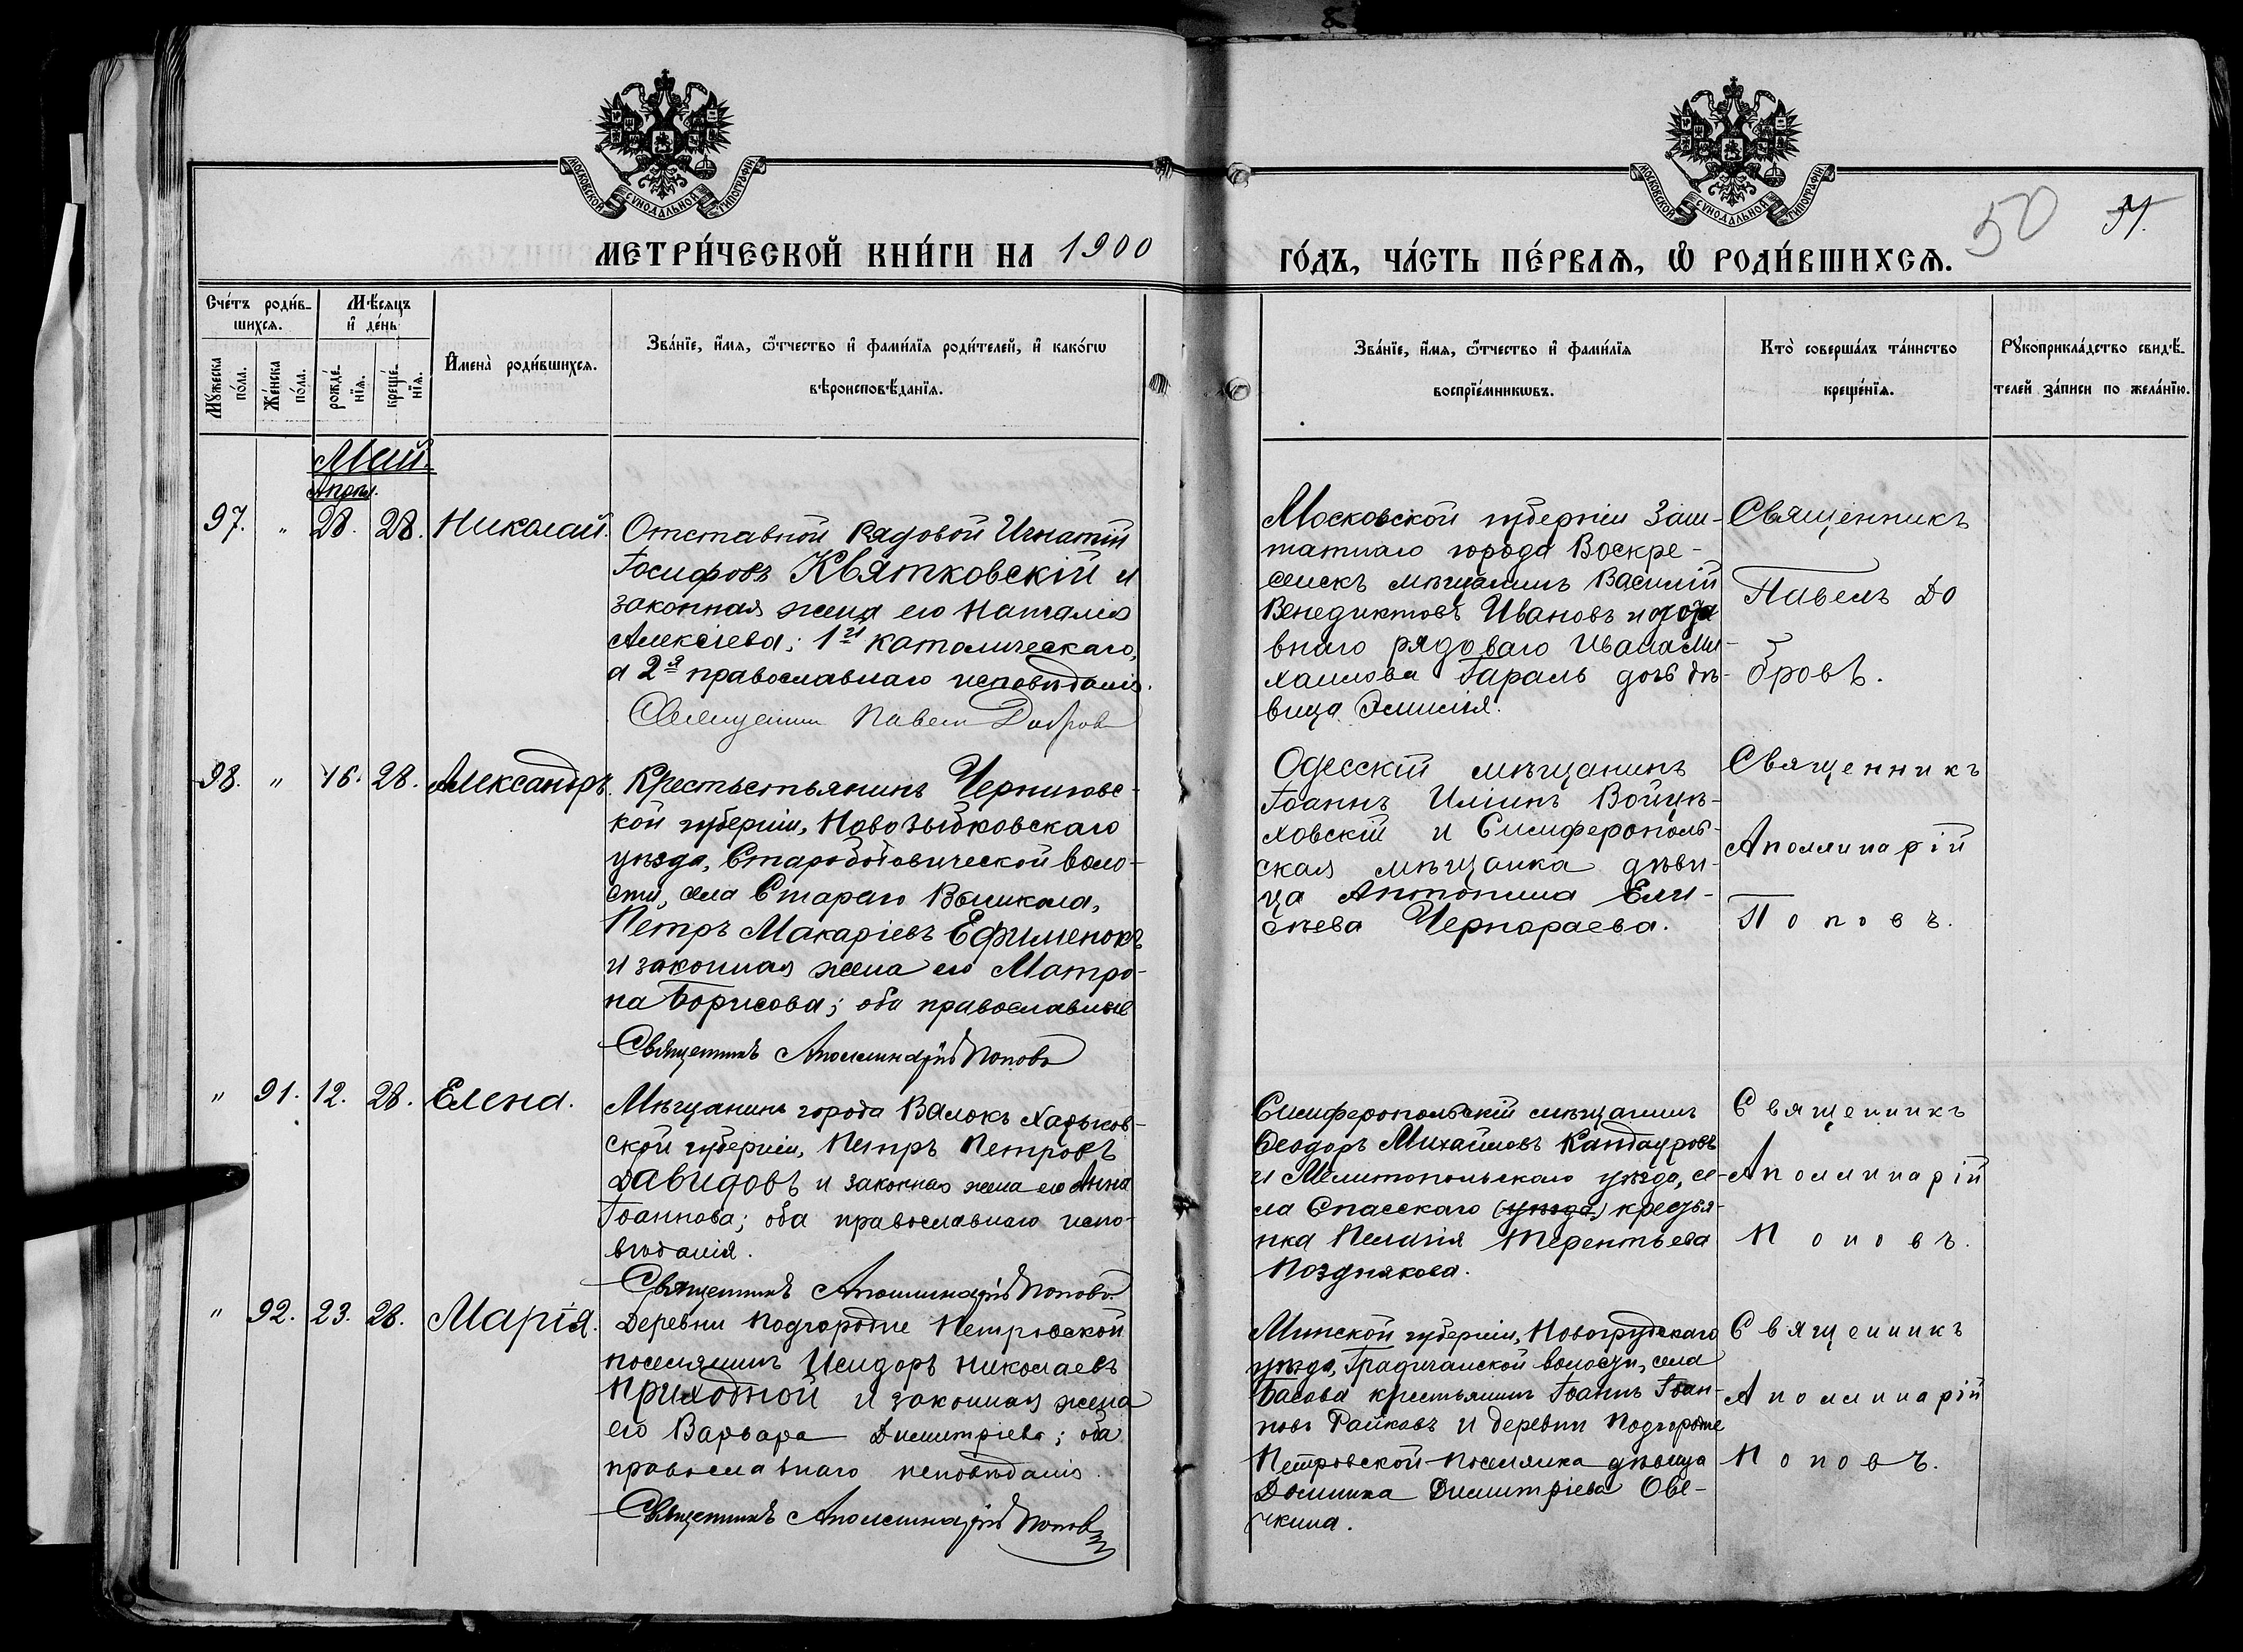 МОСКОВСКОЙ СѴНОДАЛЬНОЙ ТИПОГРАФІИ
МОСКОВСКОЙ СѴНОДАЛЬНОЙ ТИПОГРАФІИ
50 51.
МЕТРИ́ЧЕСКОЙ КНИ́ГИ НА 1900
ГО́ДЪ, ЧА́СТЬ ПЕ́РВАѦ, Ѡ҆ РОДИ́ВШИХСѦ.
Сче́тъ роди́в-
шихсѧ.
Мꙋ́жеска
по́ла.
Же́нска
по́ла.
Мѣ́сѧцъ
и҆ де́нь
рожде́-
нїѧ.
креще́-
нїѧ.
И҆мена̀ роди́вшихсѧ.
Зва́нїе, и҆́мѧ, ѻ҆́тчество и҆ фами́лїѧ роди́телей, и҆ како́гѡ
вѣроисповѣ́данїѧ.
Зва́нїе, и҆́мѧ, ѻ҆́тчество и҆ фами́лїѧ
воспрїе́мникѡвъ.
Кто̀ соверша́лъ та́инство
креще́нїѧ.
Рꙋкоприкла́дство свидѣ́-
телей за́писи по жела́нїю.
Май.
Апрѣл.
97. " 28. 28. Николай.
Отставной Рядовой Игнатій
Іосифовъ Квятковскій и
законная жена его Наталія
Алексіева; 1й католическаго,
а 2я православнаго исповѣданія.
Священник Павел Добров
Московской губерніи Заш-
татнаго города Воскре-
сенскъ мѣщанинъ Василій
Венедиктовъ Ивановъ и отста
внаго рядоваго Ивана Ми-
хаилова Гараль дочь дѣ-
вица Эмилія.
Священникъ
Павелъ До
бровъ.
98. " 16. 28. Александръ.
Крестьстьянинъ Черниговс-
кой губерніи, Новозыбковскаго
уѣзда, Старободовической воло-
сти, села Стараго Вышкова,
Петръ Макаріевъ Ефименокъ
и законная жена его Матро-
на Борисова; оба православные
Священникъ Аполлинарій Поповъ
Одесскій мѣщанинъ
Іоаннъ Иліинъ Войцѣ-
ховскій и Симферополь-
ская мѣщанка дѣви-
ца Антонина Ели-
сѣева Чернораева.
Священникъ
Аполлинарій
Поповъ.
" 91. 12. 28. Елена.
Мѣщанинъ города Валокъ Харьков-
ской губерніи, Петръ Петровъ
Давидовъ и законная жена его Анна
Іоаннова; оба православнаго испо-
вѣданія.
Священникъ Аполлинарій Поповъ.
Симферопольскій мѣщанинъ
Ѳеодоръ Михайловъ Кандауровъ
и Мелитопольскаго уѣзда, се-
ла Спасскаго (уѣзда) крестья-
нка Пелагія Терентьева
Позднякова.
Священникъ
Аполлинарій
Поповъ.
" 92. 23. 28. Марія.
Деревни Подгородне Петровской
поселянинъ Исидоръ Николаевъ
Приходной и законная жена
его Варвара Димитріева; оба
православнаго исповѣданія.
Священникъ Аполлинарій Поповъ
Минской губерніи, Новогрудскаго
уѣзда, волости, села
Басова крестьянинъ Іоаннъ Іоан-
новъ Райковъ и деревни Подгородне
Петровской поселянка дѣвица
Домника Димитріева Ове-
чкина.
Священникъ
Аполлинарій
Поповъ.